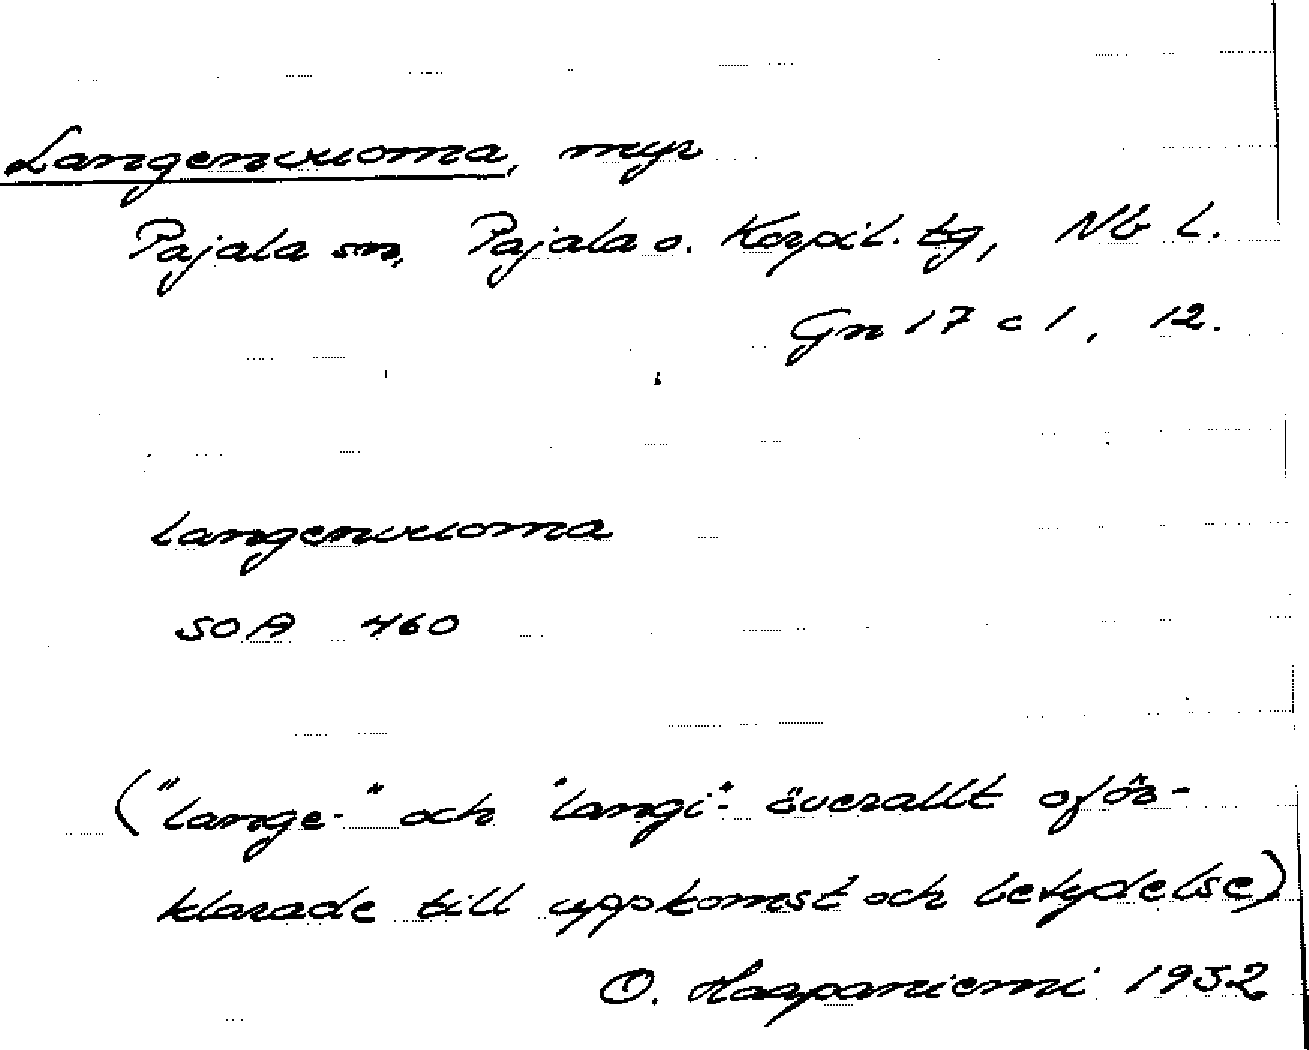 Langenvuoma, myr
Pajala sn, Pajala o. Korpil. tg, Nb l.
Gn 17 c 1, 12.
langenvuoma
SOA 460
("lange-" och "langi"- överallt oför-
klarade till uppkomst och betydelse)
O. Haapaniemi 1932